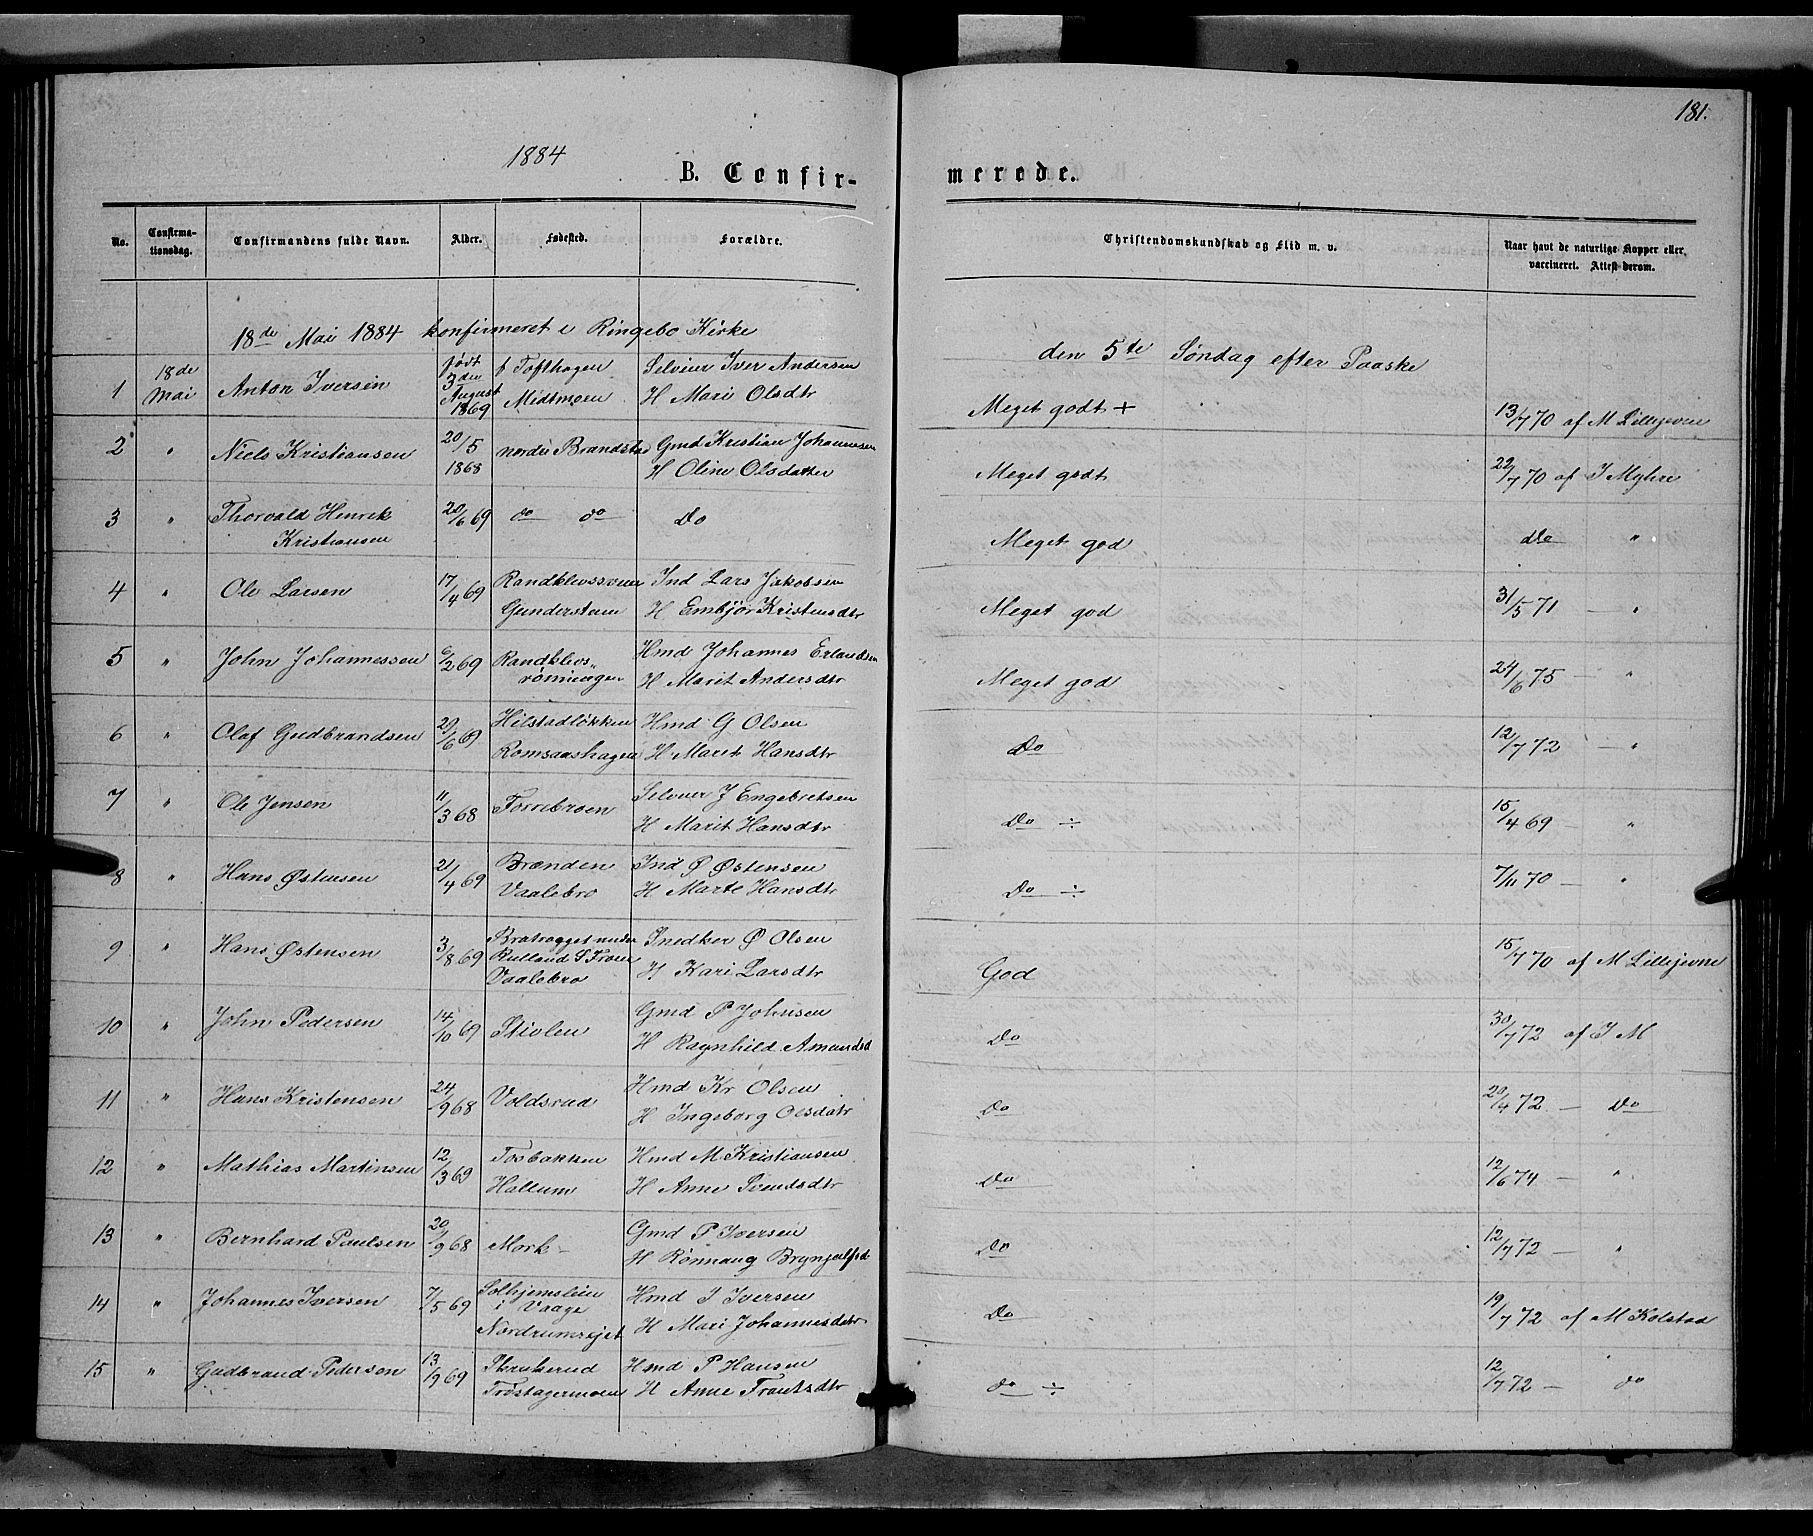 181.
1884
B. Confir-
merede.
No.
Confirma-
tionsdag.
Confirmandens fulde Navn.
Alder.
Fødested.
Forældre.
Christendomskundskab og Flid m. v.
Naar havt de naturlige Kopper eller
vaccineret. Attest derom.
18de Mai 1884 konfirmeret i Ringebo Kirke
den 5te Søndag efter Paaske
1 18de Mai Anton Iversen født 3die August 1869 f Tofthagen Midtmoen Selveier Iver Andersen H Mari Olsdtr Meget godt + 13/7 70 af M Lillejevne
2 " Niels Kristiansen 20/5 1868 nordre Brandstad Gmd Kristian Johannesen H Oline Olsdatter Meget godt 22/7 70 af I Myhre
3 " Thorvald Henrik Kristiansen 20/6 69 do do Do Meget god do "
4 " Ole Larsen 17/4 69 Randklevsveen Gunderstuen Ind Lars Jakobsen H Embjør Kristensdtr Meget god 31/5 71 — "
5 " John Johannessen 6/2 69 Randklevs„ rønningen Hmd Johannes Erlandsen H Marit Andersdtr Meget god 24/6 75 — "
6 " Olaf Gudbrandsen 29/6 69 Hilstadløkken Romsaashagen Hmd G Olsen H Marit Hansdtr Do 12/7 72 — "
7 " Ole Jensen 11/3 68 Torrebroen Selveier J Engebretsen H Marit Hansdtr Do ÷ 15/4 69 — "
8 " Hans Østensen 21/4 69 Brænden Vaalebro Ind Ø Østensen H Marte Hansdtr Do ÷ 7/11 70 — "
9 " Hans Østensen 3/8 69 Bratrogget under Rulland S Fron Vaalebro Snedker Ø Olsen H Kari Larsdtr God 15/7 70 af M Lillejevne
10 " John Pedersen 14/10 69 Stivlen Gmd P Johnsen H Ragnhild Amundsd Do 30/7 72 af I M
11 " Hans Kristensen 24/9 68 Voldsrud Hmd Kr Olsen H Ingeborg Olsdatr Do 20/4 72 — Do
12 " Mathias Martinsen 12/3 69 Tosbakken Hallum Hmd M Kristiansen H Anne Svendsdtr Do 12/6 74 — "
13 " Bernhard Paulsen 20/9 68 Mork Gmd P Iversen H Rønnaug Brynjulfsd Do 12/7 72 — "
14 " Johannes Iversen 7/5 69 Solhjemslien i Vaage Nordrumsejet Hmd I Iversen H Mari Johannesdatr Do 19/7 72 af M Kolstad
15 " Gudbrand Pederson 13/9 69 Skrukerud Trøstagermoen Hmd P Hansen H Anne Frantsdtr do ÷ 12/7 72 — do